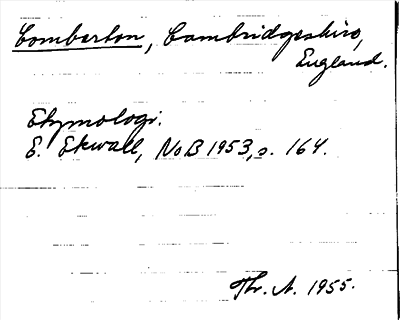 Comberton, Cambridgeshire,
England.
Etymologi.
E. Ekwall, NoB 1953, s. 164.
Thr. A. 1955.